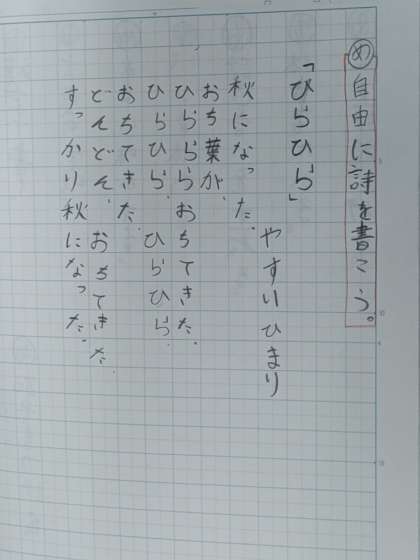 め 自由に詩を書こう。
「ひらひら」
やすいひまり
秋になった。
おち葉が、
ひらひらおちてきた。
ひらひら、ひらひら。
おちてきた。
どんどん、おちてきた。
すっかり秋になった。